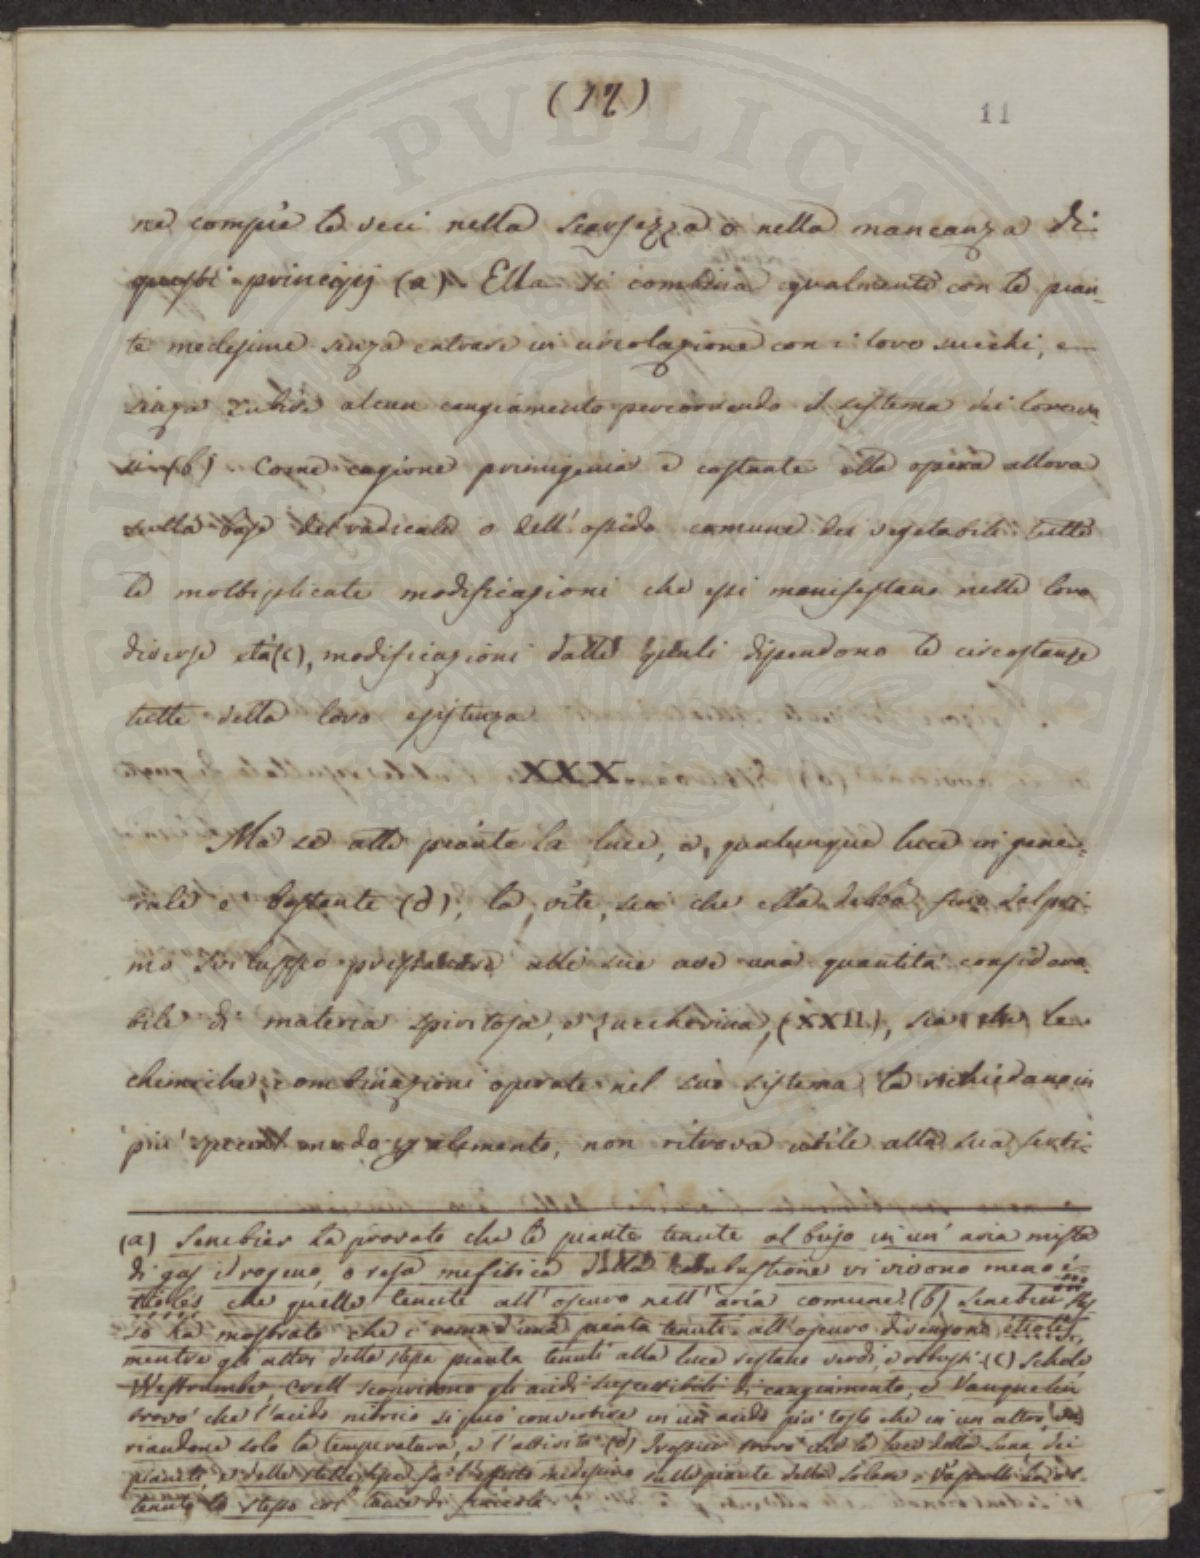 (17)
11
ne compie le veci nella scarsezza o nella mancanza di
questi principij (a). Ella si combina egualmente con le pian-
te medesime senza entrare in circolazione con i loro succhi, e
senza subire alcun cangiamento percorrendo il sistema dei loro va-
si (b). Come cagione primigenia e costante ella opera allora
sulla base del radicale o dell' ossido comune dei vegetabili tutte
le moltiplicate modificazioni che essi manifestano nelle loro
diverse età (c), modificazioni dalle quali dipendono le circostanze
tutte della loro esistenza
XXX
Ma se alle piante la luce, o qualunque luce in gene-
rale è bastante (d), la vite, sia che ella debba fino dal pri-
mo sviluppo presentare alle sue uve una quantità considera-
bile di materia spiritosa, e zuccherina, (XXII), sia che le
chimiche combinazioni operate nel suo sistema la richiedano in
più special modo egualmente, non ritrova utile alla sua ferti-
(a) Senebier ha provato che le piante tenute al bujo in un' aria mista
di gas idrogeno, o resa mefitica dalla combustione vi vivono meno e-
tiolés che quelle tenute all' oscuro nell' aria comune. (b) Senebier stes-
so ha mostrato che i rami d'una pianta tenuti all' oscuro divengono etiolés,
mentre gli altri della stessa pianta tenuti alla luce restano verdi, e robusti. (c) Schele
Westrumbe, Crell scoprirono gli acidi suscettibili di cangiamento, e Vauquelin
trovò che l'acido nitrico si può convertire in un acido più tosto che in un altro, va-
riandone solo la temperatura, e l'attività (d) Tessier trovò che la luce della Luna, dei
pianeti, e delle stelle fisse fa l'effetto medesimo sulle piante della Solare. Vassalli ha ot-
tenuto lo stesso col lume di